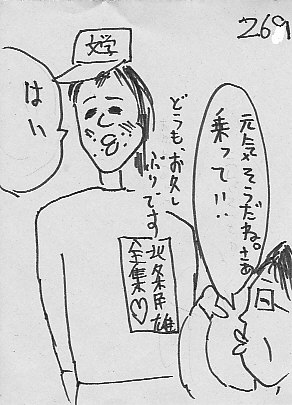 269
文学
元気そうだね。さぁ
乗って!!
どうも、お久し
ぶりです
はい
北条民雄
全集♡
日